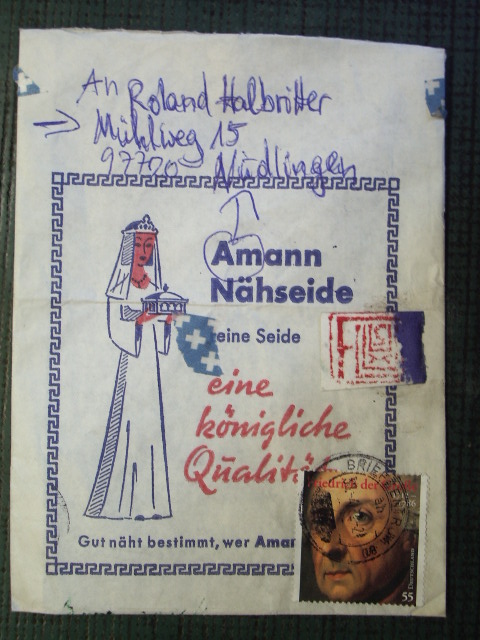 An Roland Halbritter
Mühlweg 15
97720 Nüdlingen
Amann
Nähseide
reine Seide
eine
königliche
Qualitä
Gut näht bestimmt, wer Aman
BRIEFZENTRUM
iedrich der
DEUTSCHLAND
55